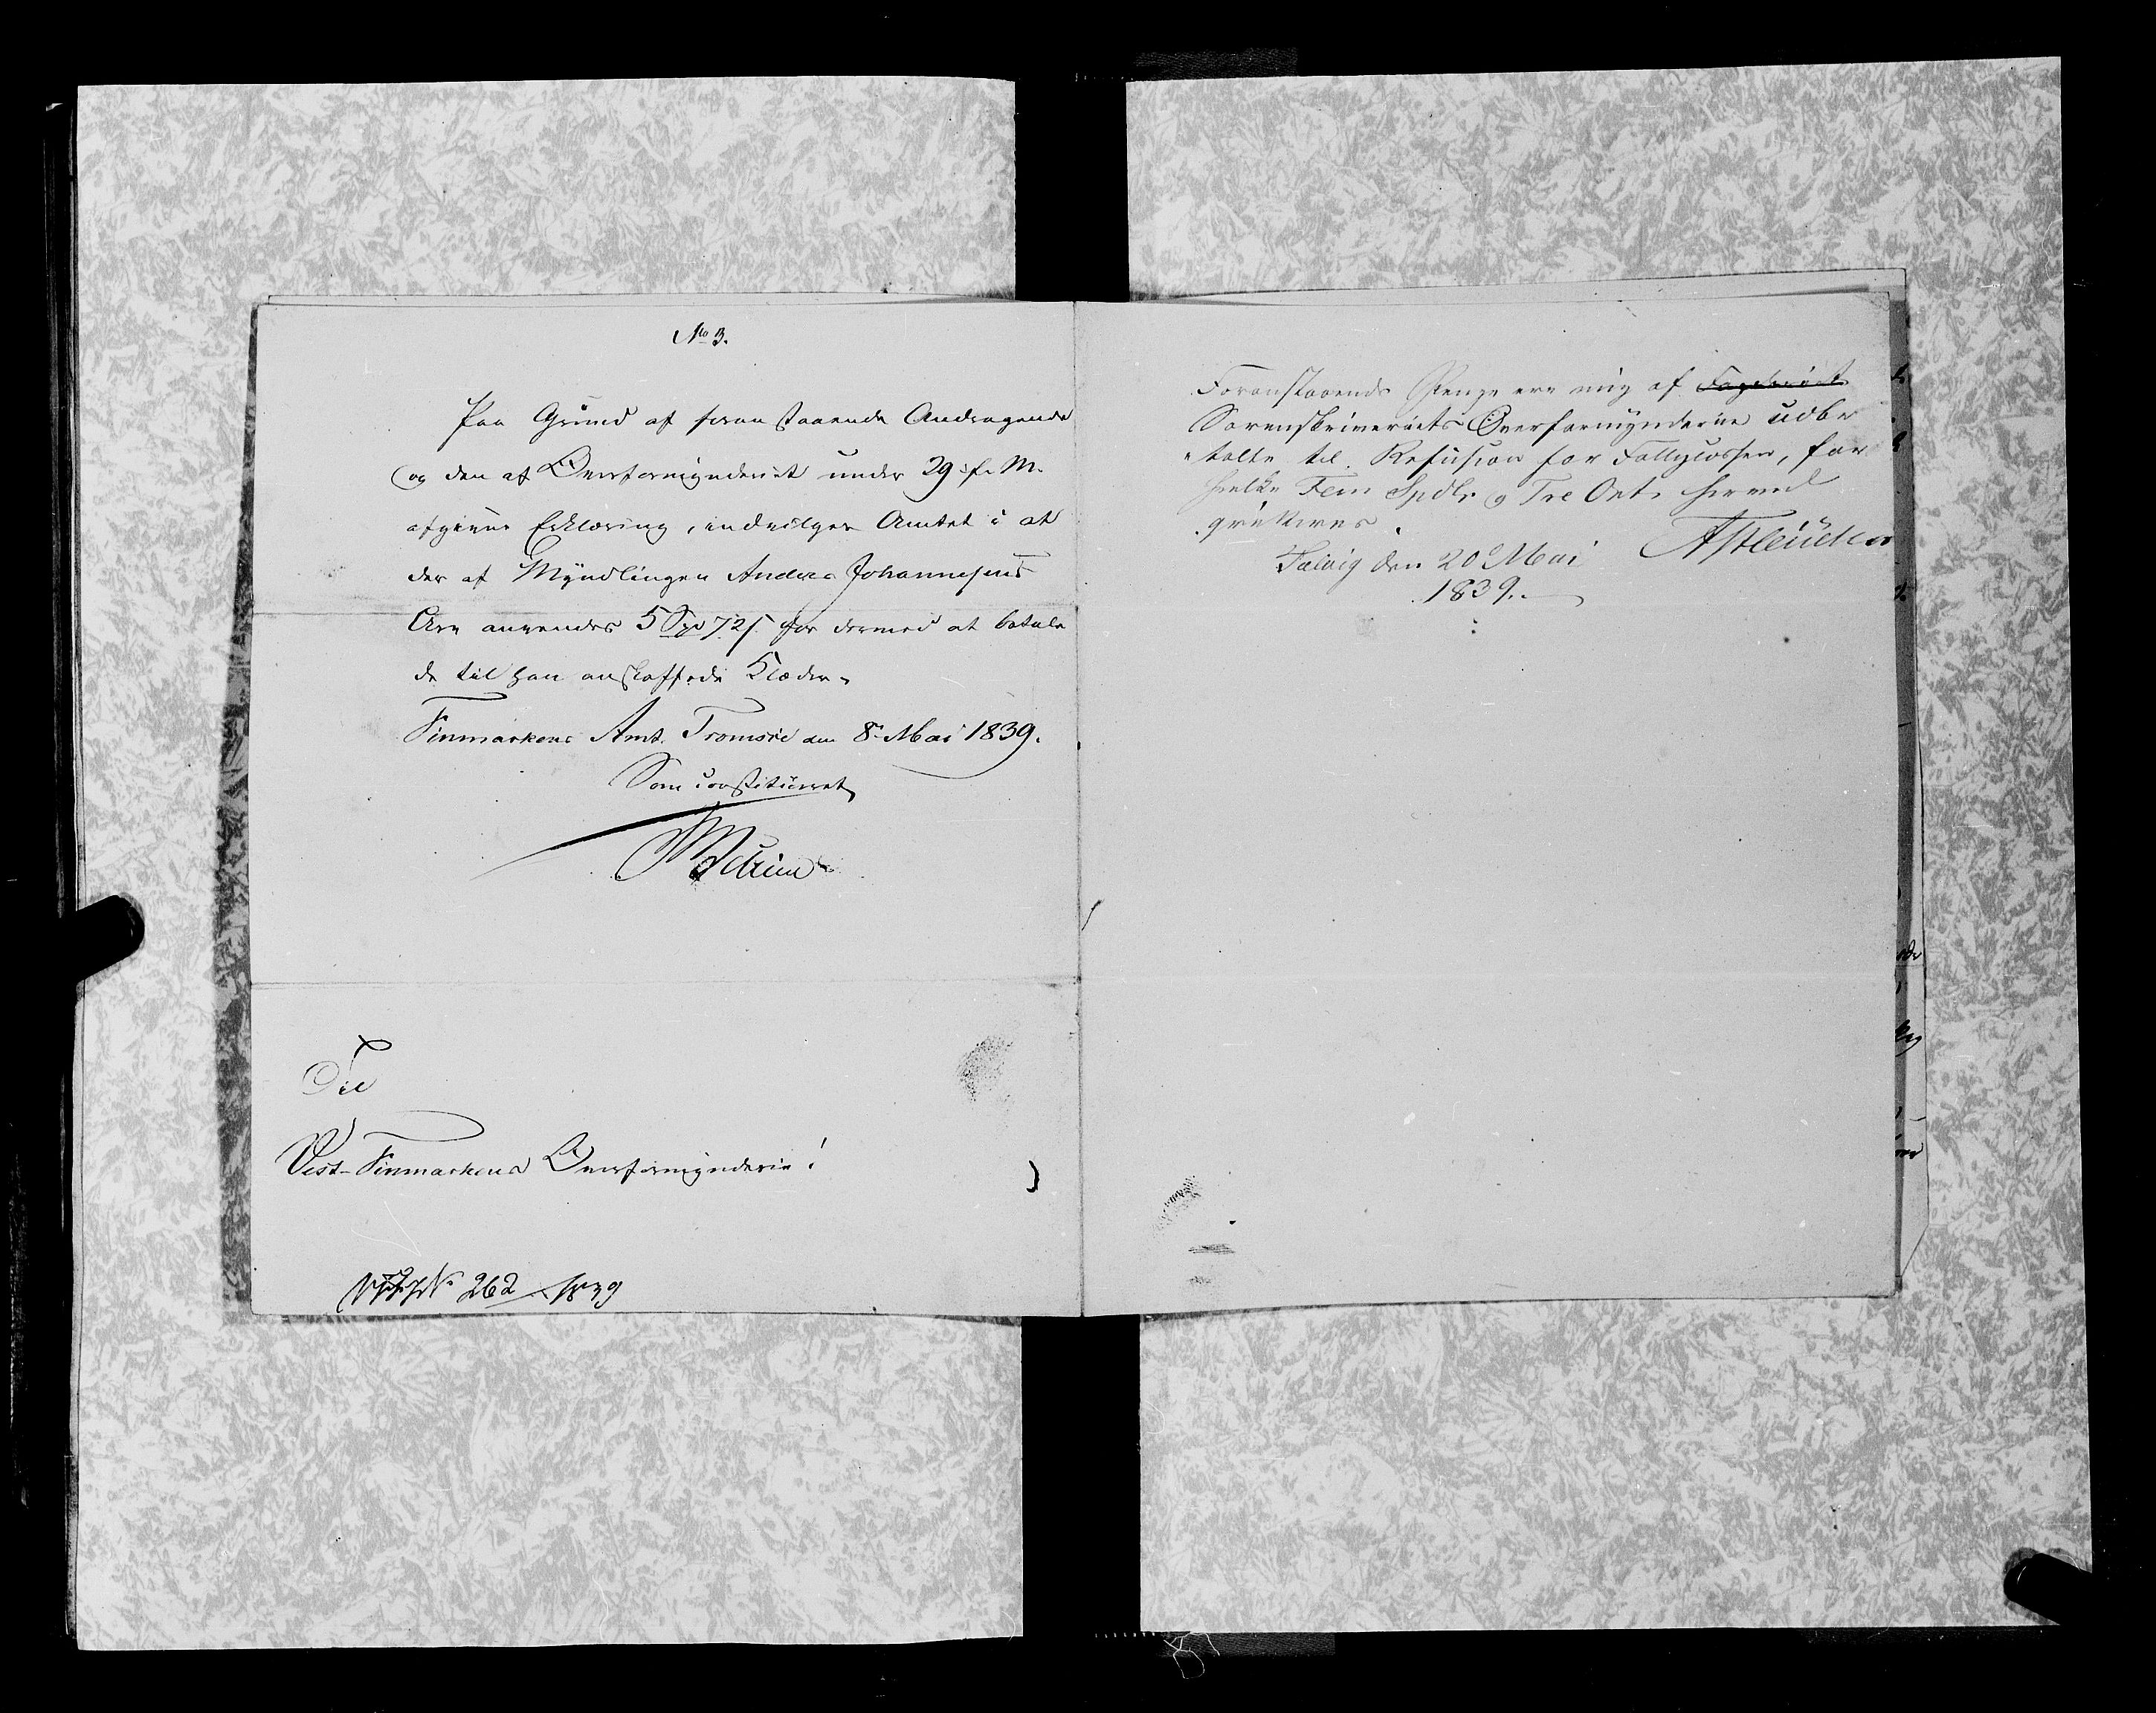 No 3.
Paa Grund af foranstaaende Andragende
og den af Overformynderiet under 29 f. M.
afgivne Erklæring, indvilger Amtet i at
der af Myndlingen Anders Johannesens
Arv anvendes 5 Spd 72 s for dermed at betale
de til ham anskaffede Klæder.
Finmarkens Amt. Tromsöe den 8de Mai 1839.
Som constitueret
Til
Vest-Finmarkens Overformynderie!
No 262 1839
Foranstaaende Penge ere mig af
Sorenskriveriets Overformynderie udbe
talte til Refusion for Fattigcassen, for
hvilke Fem Spdlr og Tre Ort herved
qvitteres.
Talvig den 20 Mai
1839.